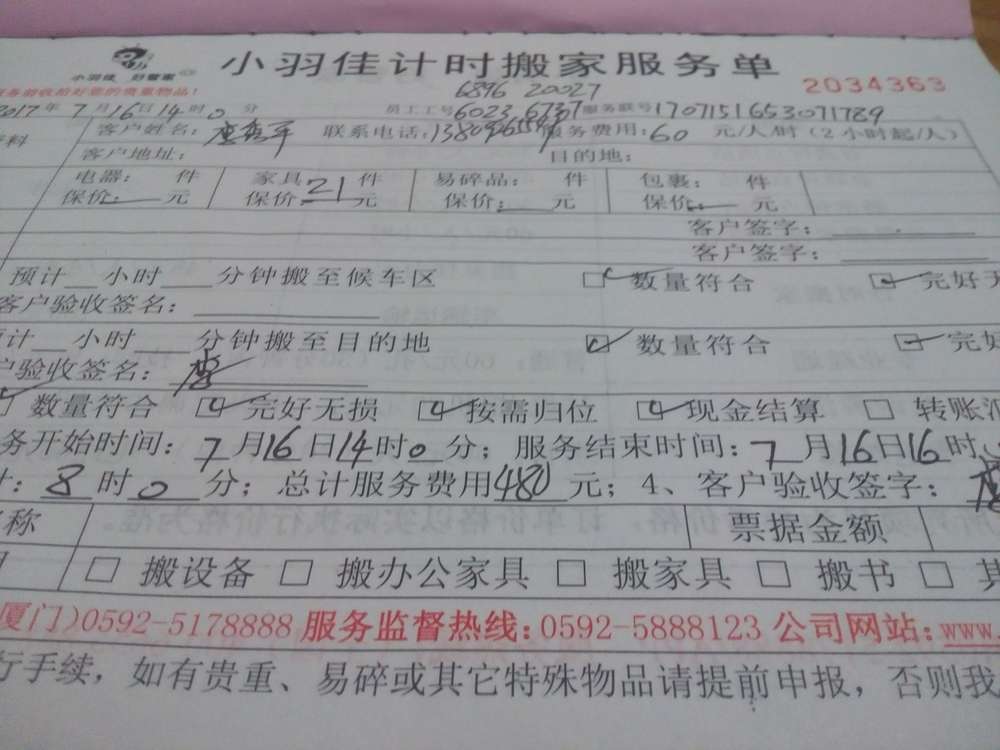 小羽佳 好管家
小羽佳计时搬家服务单
务请收拾好您的贵重物品！
6896 20027
2034363
2017年7月16日14时0分 员工工号6023 6737 服务联号1707151653071789
料 客户姓名： 联系电话： 服务费用：60元/人/时（2小时起/人）
客户地址： 目的地：
电器： 件 家具：21件 易碎品： 件 包裹： 件
保价： 元 保价： 元 保价： 元 保价： 元
客户签字：
客户签字：
预计 小时 分钟搬至候车区 □数量符合 □完好无
客户验收签名：
计 小时 分钟搬至目的地 □数量符合 □完好
户验收签名：
□数量符合 □完好无损 □按需归位 □现金结算 □转账
务开始时间：7月16日14时0分；服务结束时间：7月16日16时
计：8时0分；总计服务费用480元；4、客户验收签字：
名称 票据金额
□搬设备 □搬办公家具 □搬家具 □搬书 □其
厦门)0592-5178888 服务监督热线：0592-5888123 公司网站：www.
行手续，如有贵重、易碎或其它特殊物品请提前申报，否则我